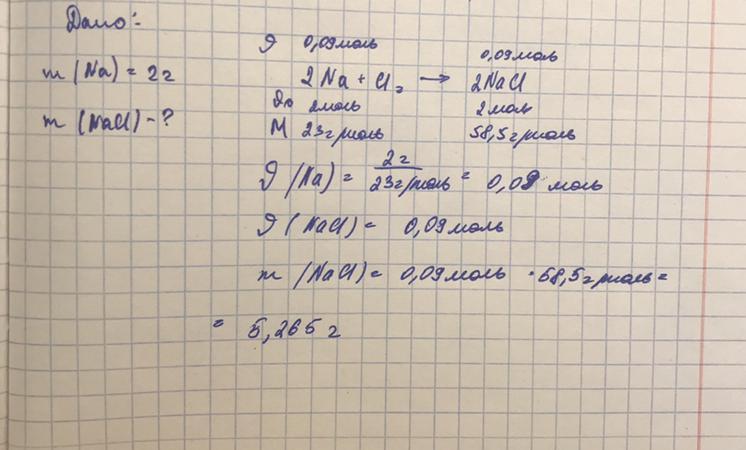 Дано:
m (Na) = 2г
m (NaCl) - ?
ν 0,09моль 0,09моль
2Na + Cl₂ → 2NaCl
ν₀ 2моль 2моль
M 23г/моль 58,5г/моль
ν (Na) = 2г / 23г/моль = 0,09 моль
ν (NaCl) = 0,09моль
m (NaCl) = 0,09моль · 58,5г/моль =
= 5,265г